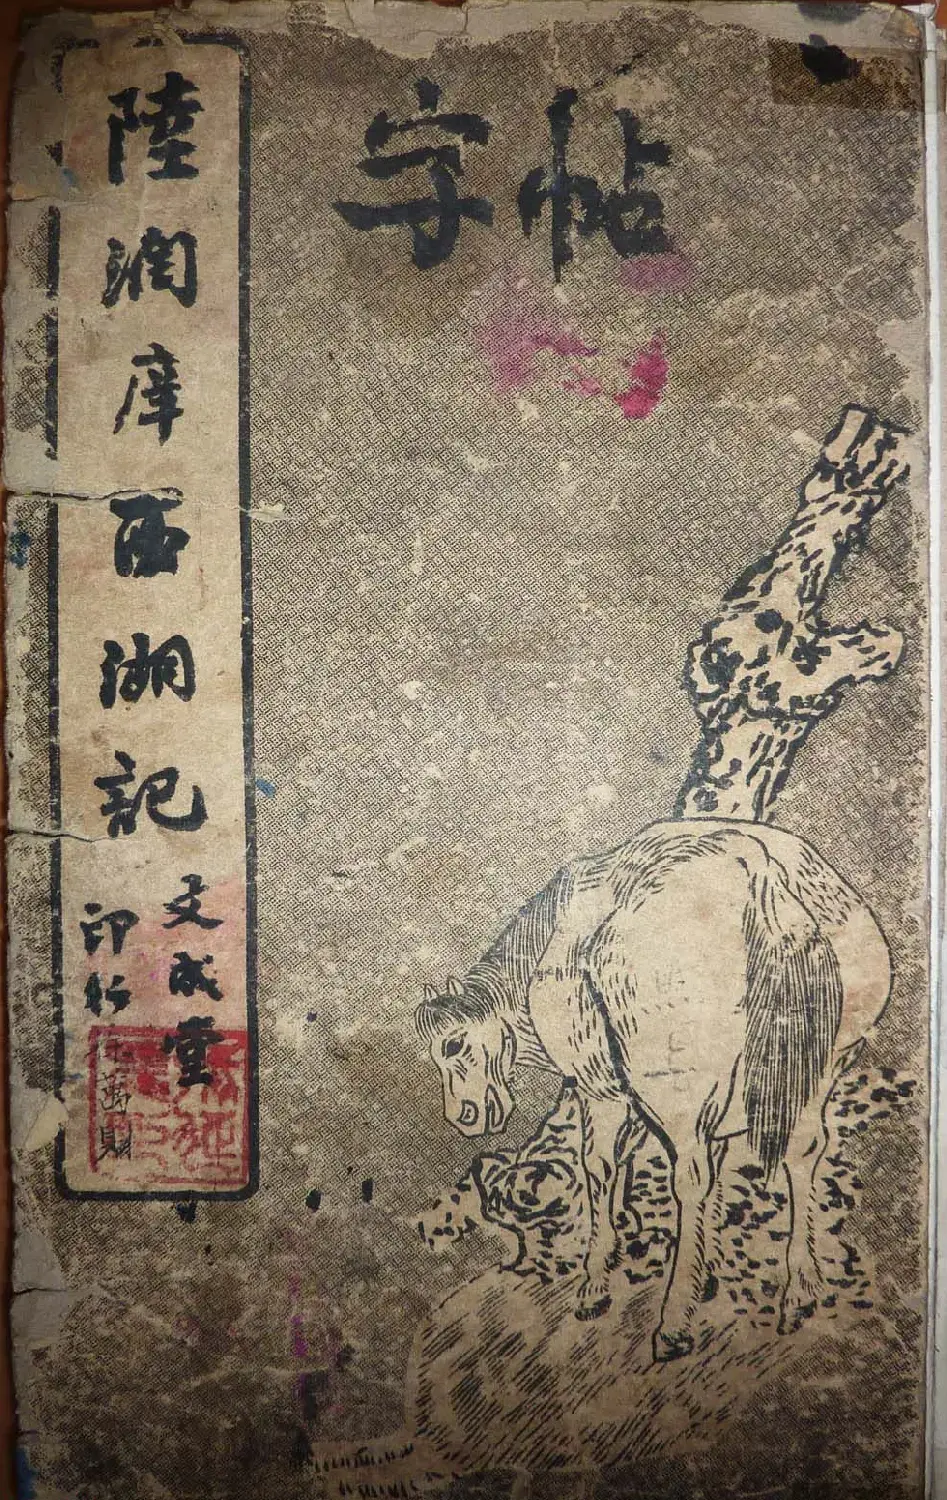 字帖
陸潤庠西湖記
文成堂
印行